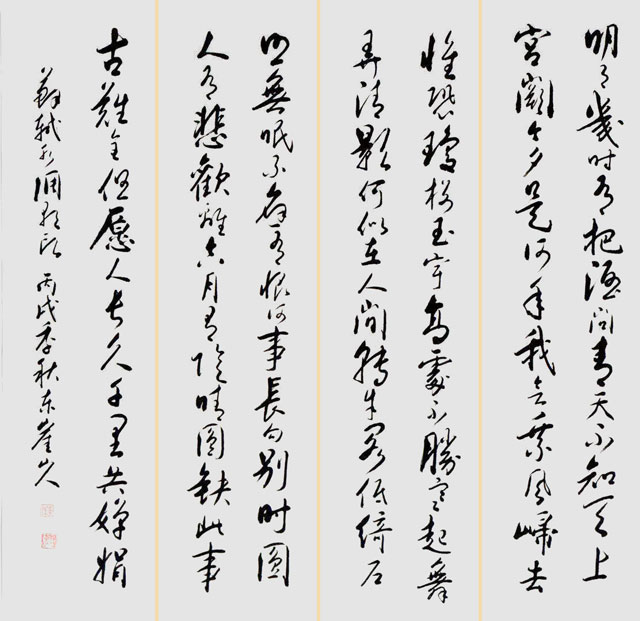 明月幾时有把酒问青天不知天上
宫阙今夕是何年我欲乘风歸去
惟恐瓊楼玉宇高處不勝寒起舞
弄清影何似在人间轉朱阁低绮户
照無眠不應有恨何事長向别时圆
人有悲歡離合月有陰晴圆缺此事
古難全但愿人長久千里共嬋娟
蘇軾水调歌头 丙戌季秋东崖山人